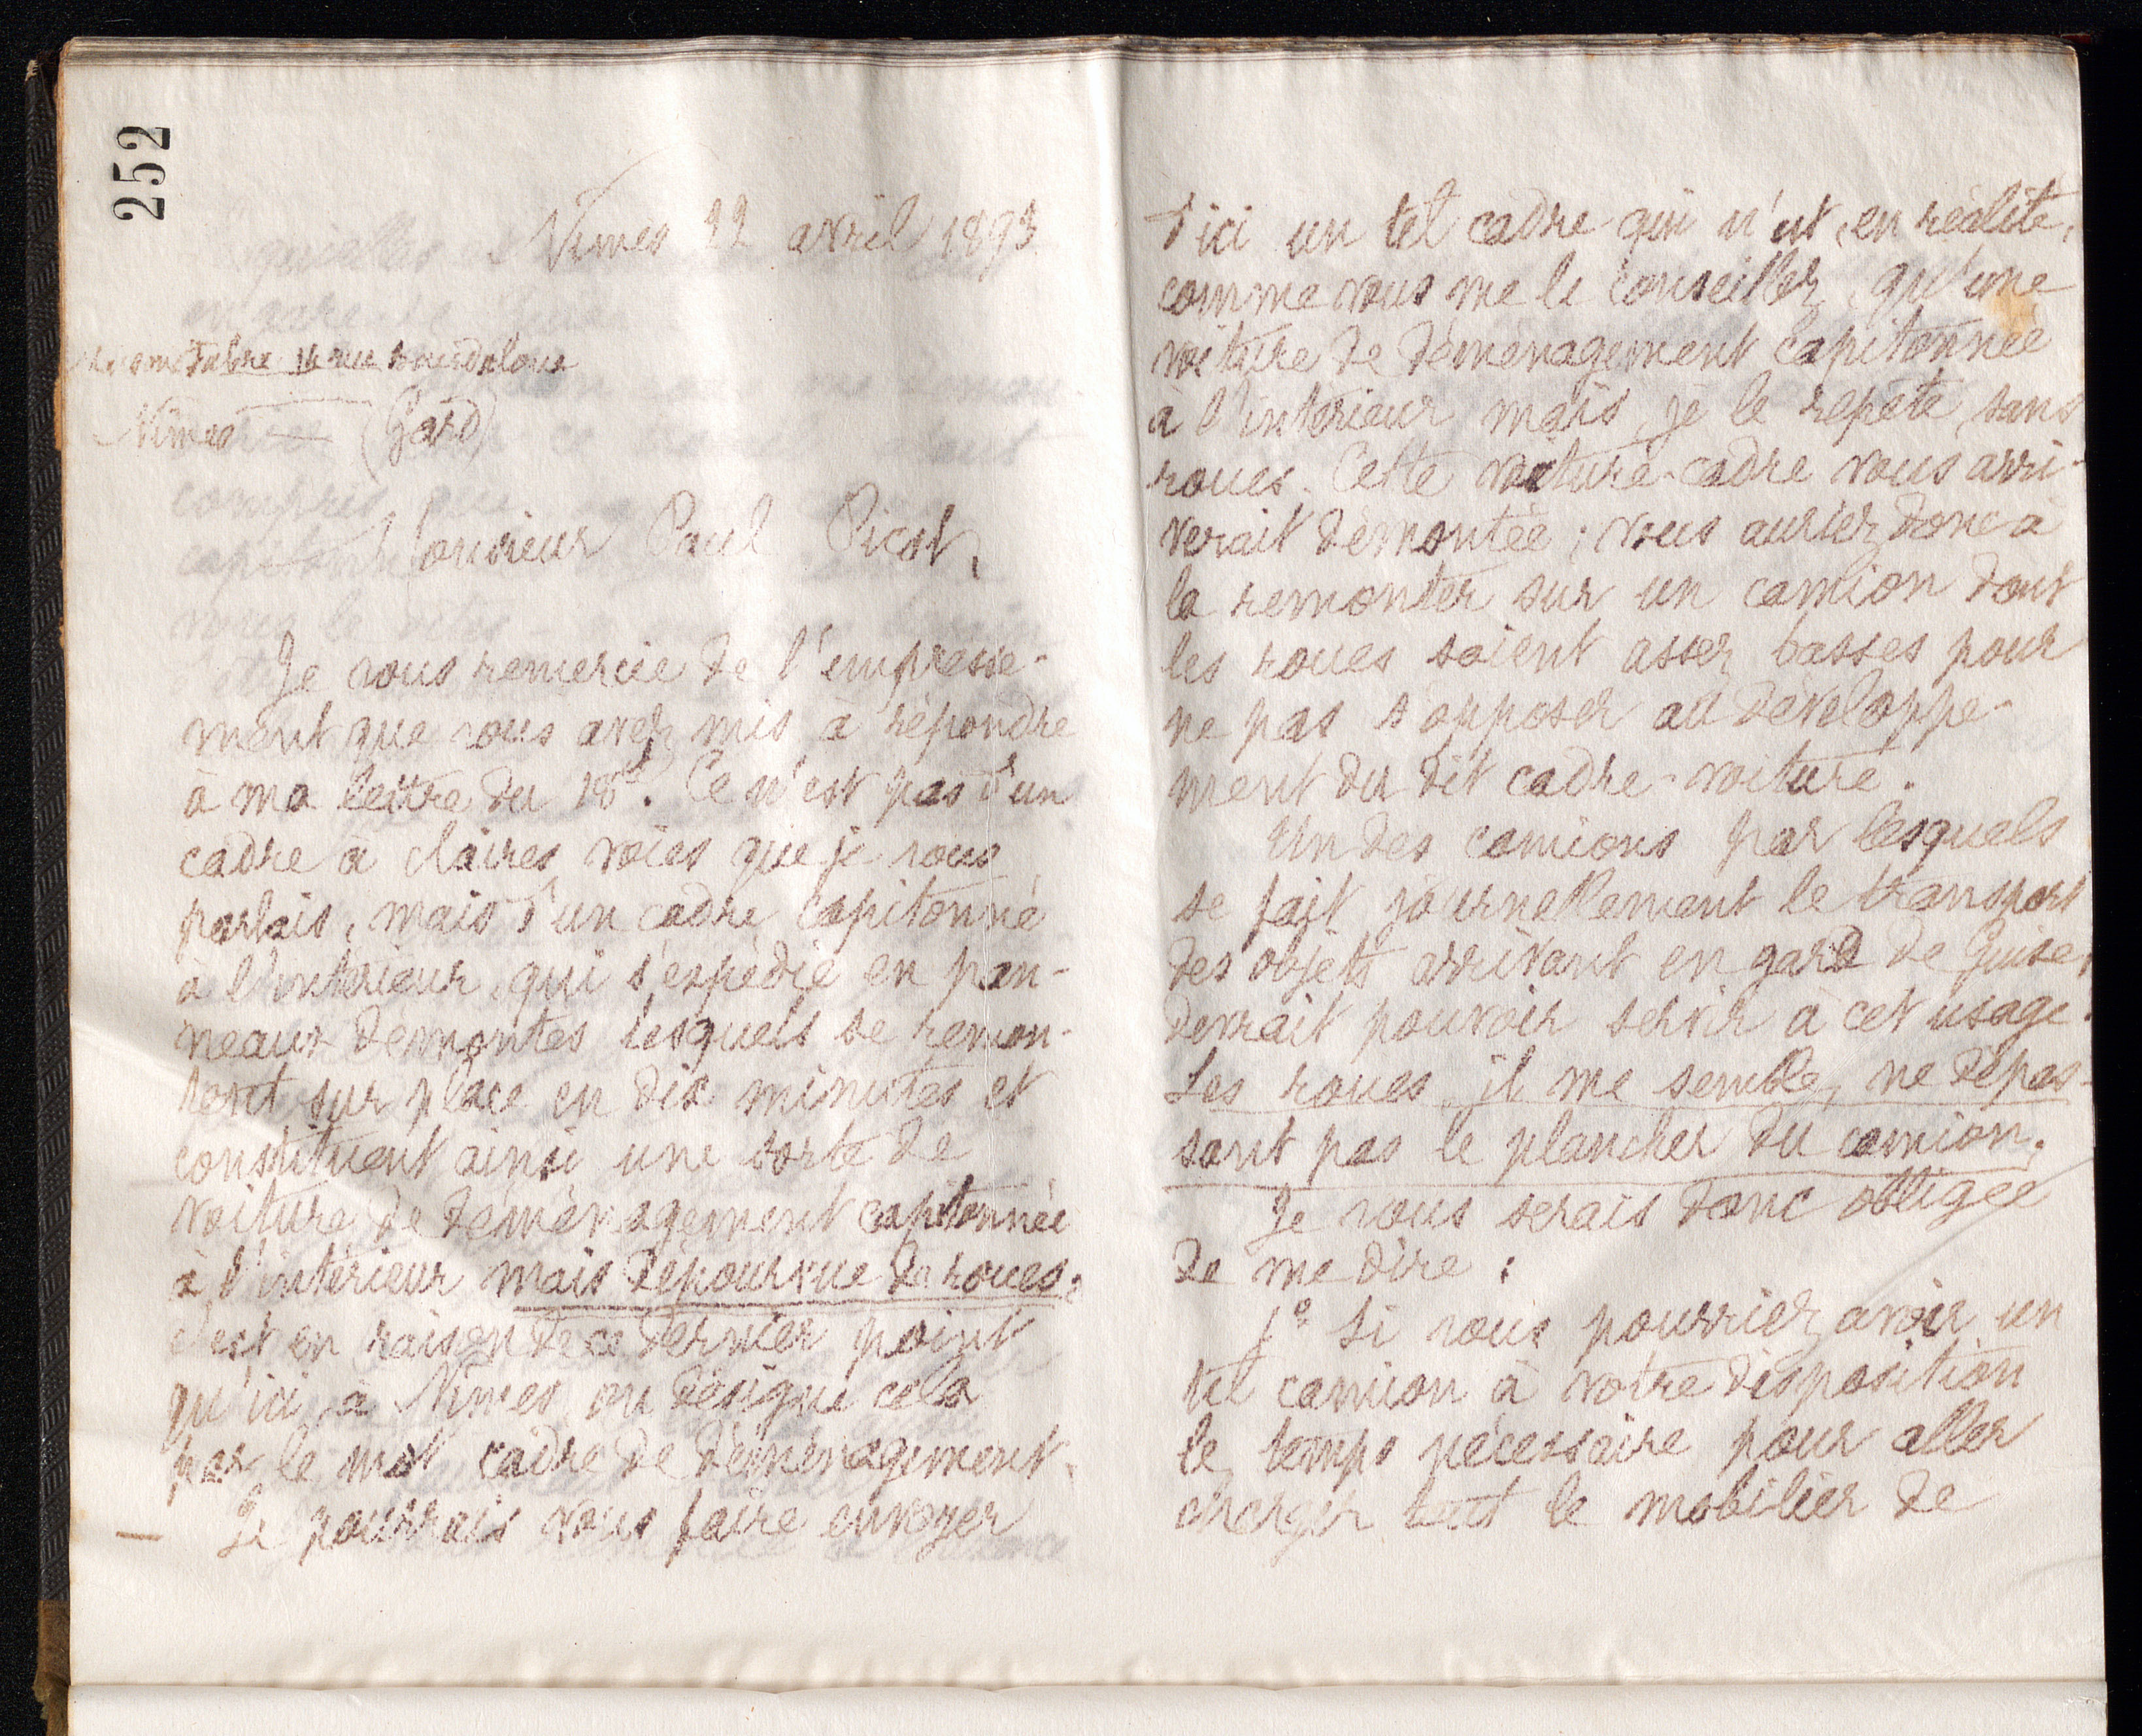 252
Nimes 22 avril 1893
Fabre 14 rue Bourdaloue
Nîmes — (Gard)
Monsieur Paul Picot,
Je vous remercie de l'empresse-
ment que vous avez mis à répondre
à ma lettre du 18 ct. Ce n'est pas d'un
cadre à claires voies que je vous
parlais, mais d'un cadre capitonné
à l'intérieur, qui s'expédie en pan-
neaux démontés lesquels se remon-
tent sur place en dix minutes et
constituent ainsi une sorte de
voiture de déménagement capitonnée
à l'intérieur mais dépourvue de roues;
c'est en raison de ce dernier point
qu'ici, à Nimes, on désigne cela
par le mot cadre de déménagement.
Je pourrais vous faire envoyer
d'ici un tel cadre qui n'est, en réalité,
comme vous me le conseillez, qu'une
voiture de déménagement capitonnée
à l'intérieur mais, je le répète, sans
roues. Cette voiture-cadre vous arri-
verait démontée; vous auriez donc à
la remonter sur un camion dont
les roues soient assez basses pour
ne pas s'opposer au développe-
ment du dit cadre-voiture.
Un des camions par lesquels
se fait journellement le transport
des objets arrivant en gare de Guise,
devrait pouvoir servir à cet usage.
Les roues, il me semble, ne dépas-
sant pas le plancher du camion.
Je vous serais donc obligée
de me dire:
1º Si vous pourriez avoir un
tel camion à votre disposition
le temps nécessaire pour aller
charger tout le mobilier de